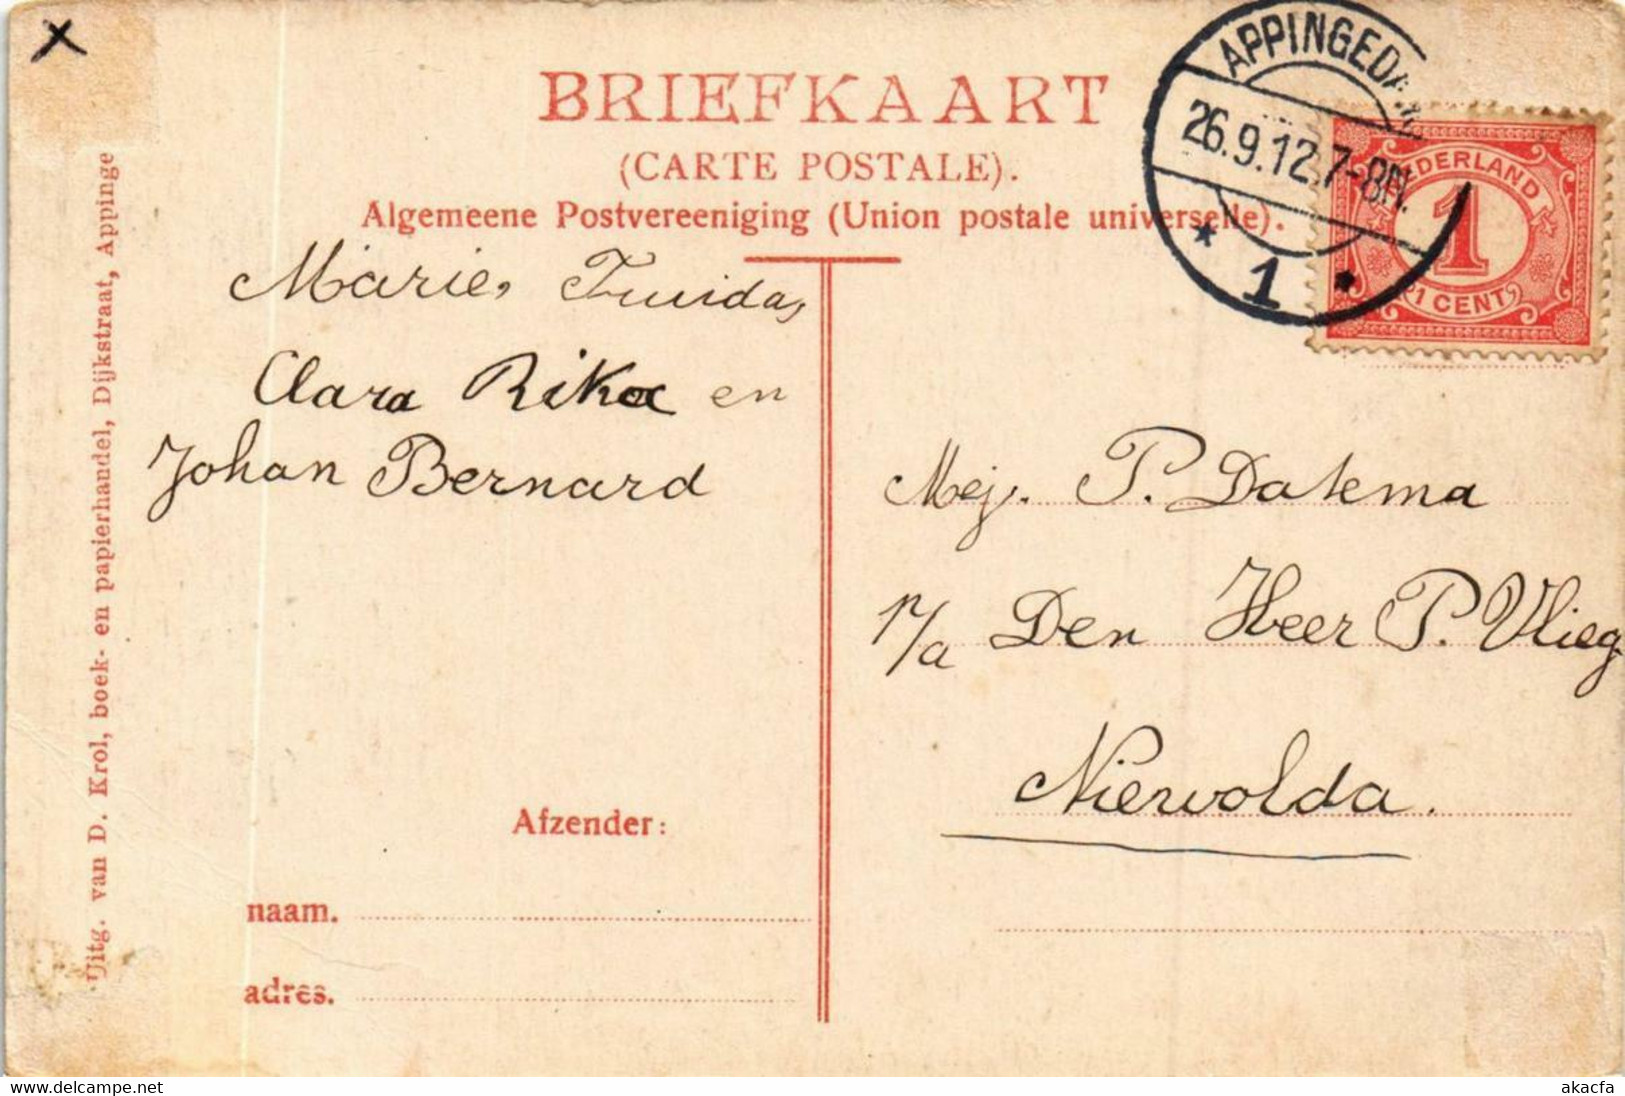 BRIEFKAART
(CARTE POSTALE).
Algemeene Postvereeniging (Union postale universelle).
APPINGEDA
26.9.12.7-8N.
1
NEDERLAND
1
1 CENT
Marie,
Clara Rika en
Johan Bernard
Mej. P. Datema
p/a Den Heer P. Vlieg
Niewolda.
Afzender:
naam.
adres.
Uitg. van D. Krol, boek- en papierhandel, Dijkstraat, Appinge
akacfa